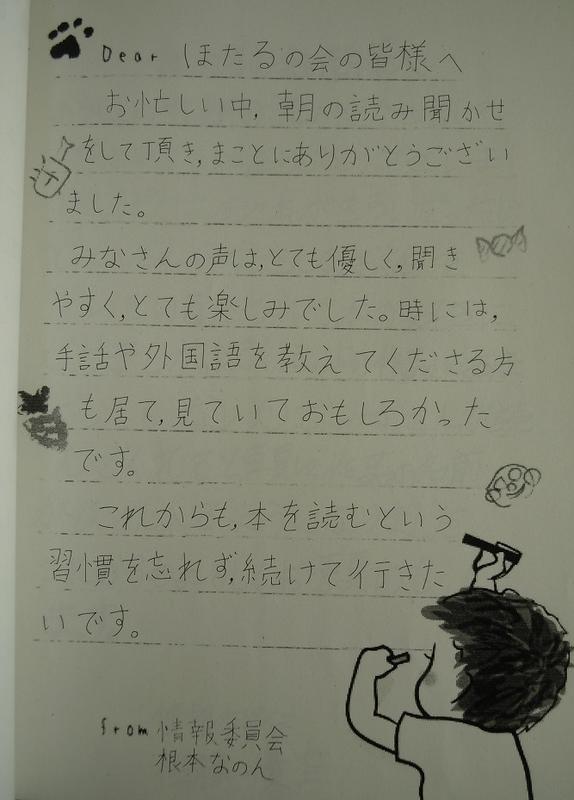 Dear ほたるの会の皆様へ
お忙しい中，朝の読み聞かせ
をして頂き，まことにありがとうござい
ました。
みなさんの声は，とても優しく，聞き
やすく，とても楽しみでした。時には，
手話や外国語を教えてくださる方
も居て，見ていておもしろかった
です。
これからも，本を読むという
習慣を忘れず，続けて行きた
いです。
from 情報委員会
根本なのん